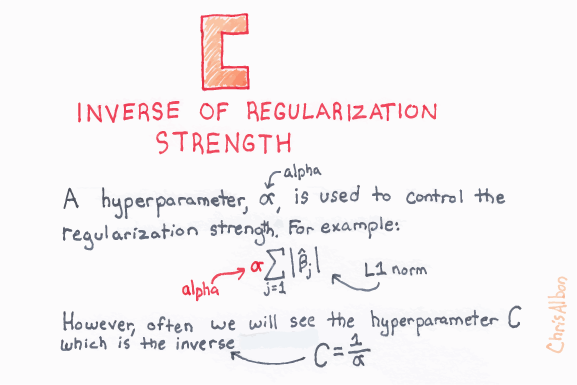 C
INVERSE OF REGULARIZATION
STRENGTH
alpha
A hyperparameter, α, is used to control the
regularization strength. For example:
α∑|β̂ⱼ|
j=1
L1 norm
alpha
However, often we will see the hyperparameter C
which is the inverse
C=1/α
ChrisAlbon